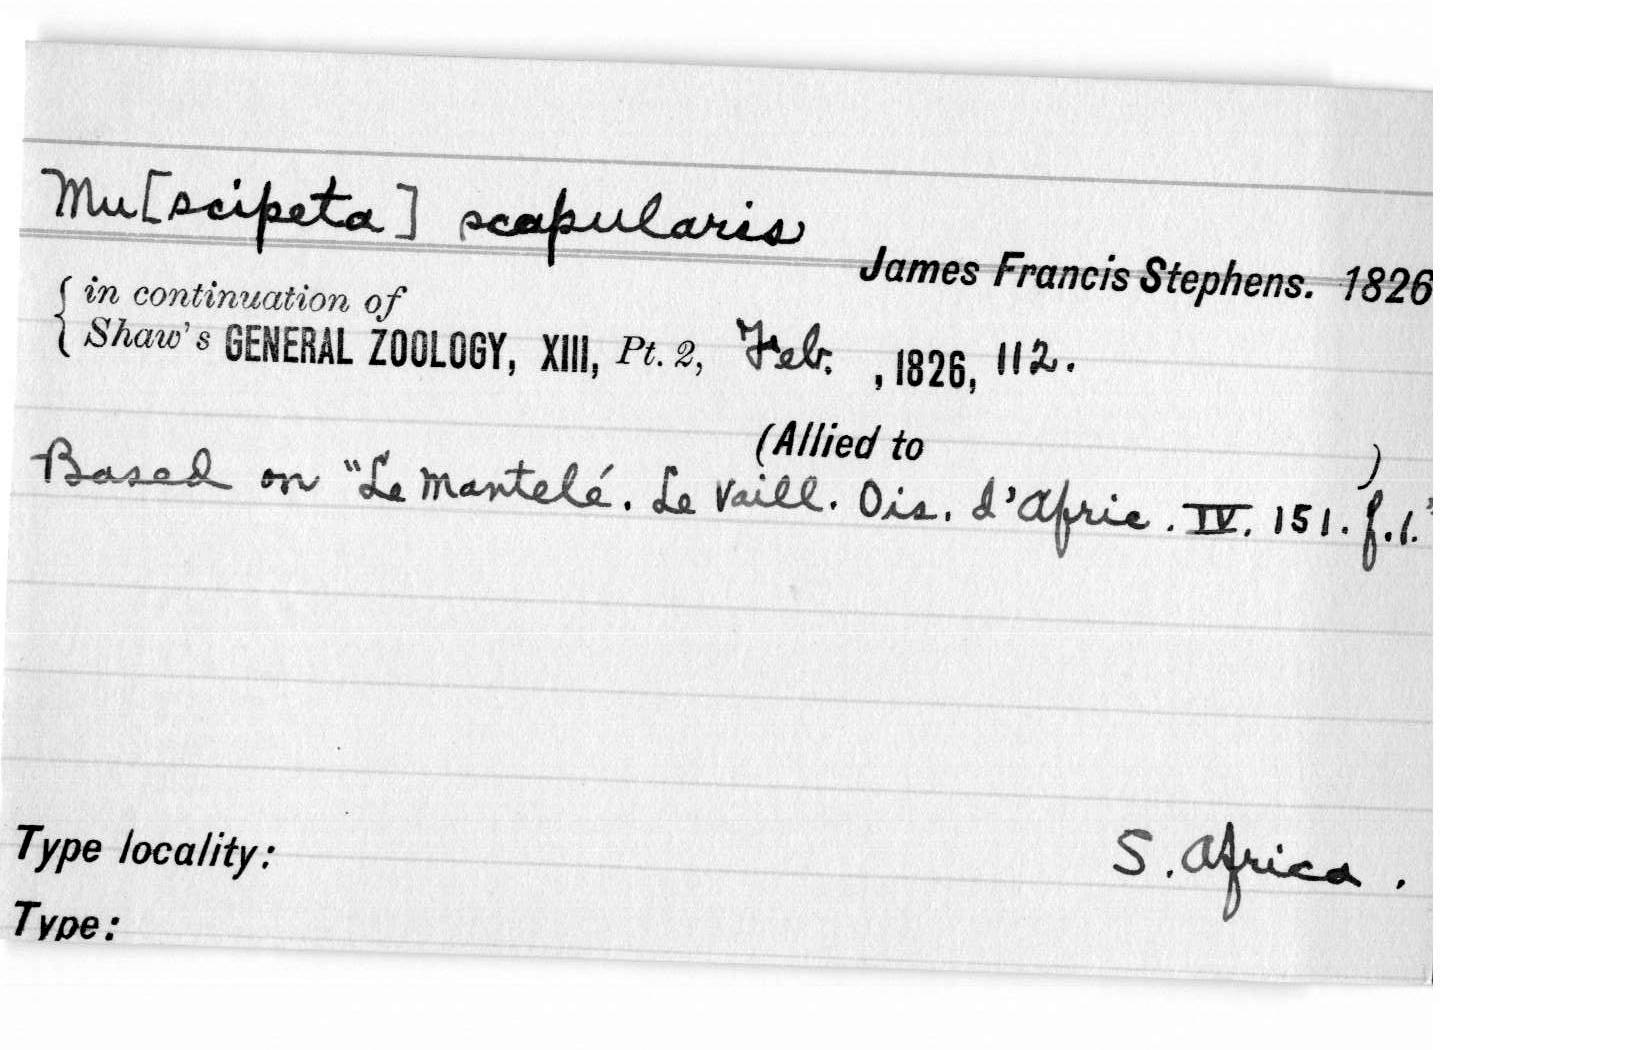 Mu[scipeta] scapularis
James Francis Stephens. 1826
in continuation of
Shaw's GENERAL ZOOLOGY, XIII, Pt. 2, Feb. , 1826, 112.
(Allied to )
Based on "Le Mantelé. Le Vaill. Ois. d'Afric. IV. 151. f.1."
Type locality: S. Africa.
Type: